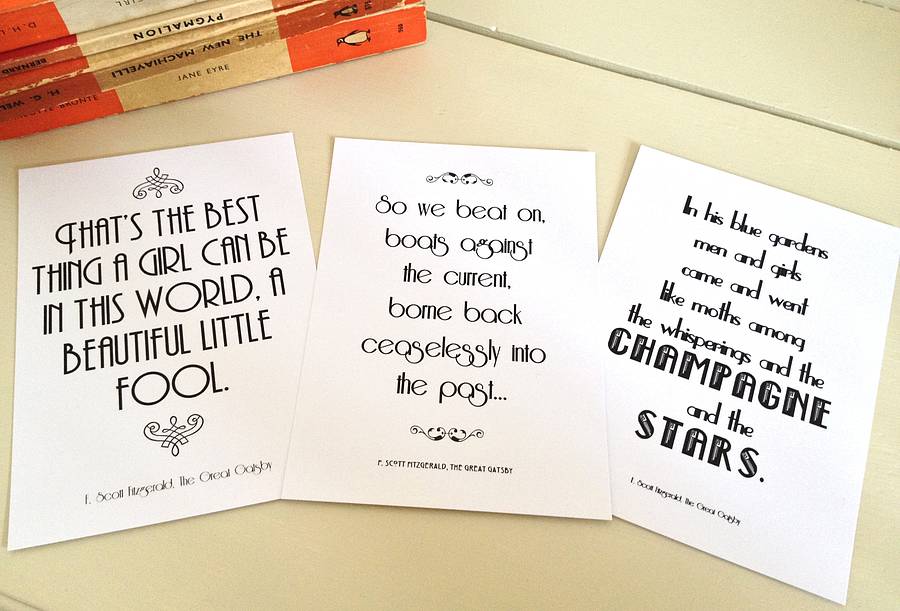 D.H.L
GIRL
BERNARD
PYGMALION
H. G. WEL
THE NEW MACHIAVELLI
BRONTE
JANE EYRE
THAT'S THE BEST
THING A GIRL CAN BE
IN THIS WORLD, A
BEAUTIFUL LITTLE
FOOL.
F. Scott Fitzgerald, The Great Gatsby
So we beat on,
boats against
the current,
borne back
ceaselessly into
the past...
F. SCOTT FITZGERALD, THE GREAT GATSBY
In his blue gardens
men and girls
came and went
like moths among
the whisperings and the
CHAMPAGNE
and the
STARS.
F. Scott Fitzgerald, The Great Gatsby